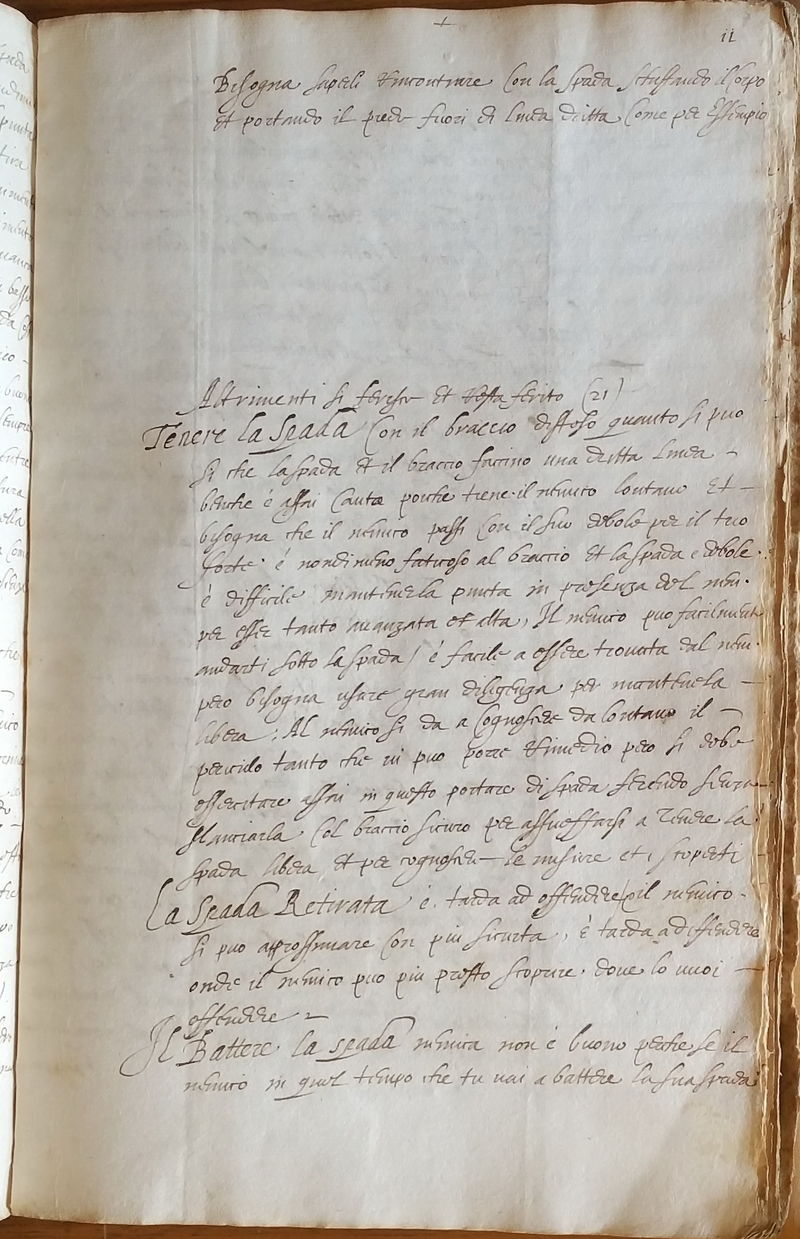 11
Bisogna saperli rincontrare con la spada schifando il corpo
et portando il piede fuori di linea dritta come per essempio
Altrimenti si ferisce et resta ferito (21)
Tenere la Spada con il braccio disteso quanto si puo
si che la spada et il braccio faccino una dritta linea
benche è assai cauta poiche tiene il nemico lontano et
bisogna che il nemico passi con il suo debole per il tuo
forte. é nondimeno faticoso al braccio et la spada e debole.
è difficile mantener la punta in presenza del nem.
per esser tanto avanzata et alta, Il nemico puo facilmente
andarti sotto la spada, é facile a essere trovata dal nem.
pero bisogna usare gran diligenza per mantenerla
libera; Al nemico si da a cognoscere da lontano il
pericolo tanto che vi puo porre rimedio pero si debbe
essercitare assai in questo portare di spada ferendo senza
slanciarla col braccio sicuro per assueffarsi a tenere la
spada libera et per cognoscere le misure et i scoperti
La Spada Retirata è tarda ad offendere, il nemico
si puo approssimare con piu sicurta, è tarda a diffendere
onde il nemico puo piu presto scoprire dove lo vuoi
offendere
Il Battere la spada nemica non é buono perche se il
nemico in quel tempo che tu vai a battere la sua spada